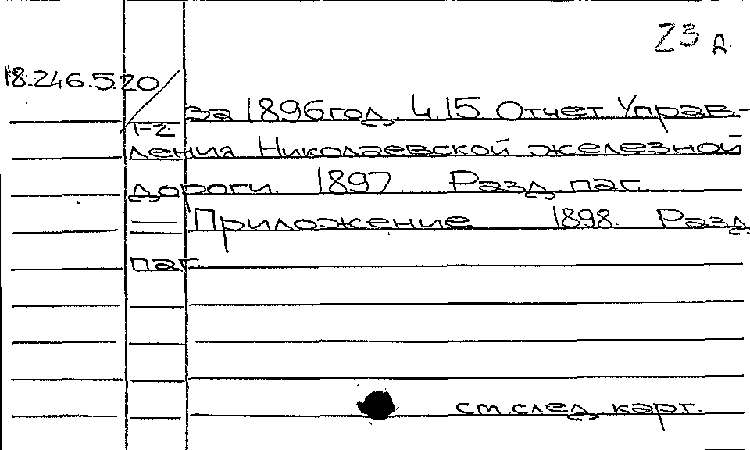 23 д
18.246.5.20/1-2
за 1896 год. Ч.15. Отчет Управ-
ления Николаевской железной
дороги. 1897. Разд. паг.
— Приложение. 1898. Разд.
паг.
см. след. карт.